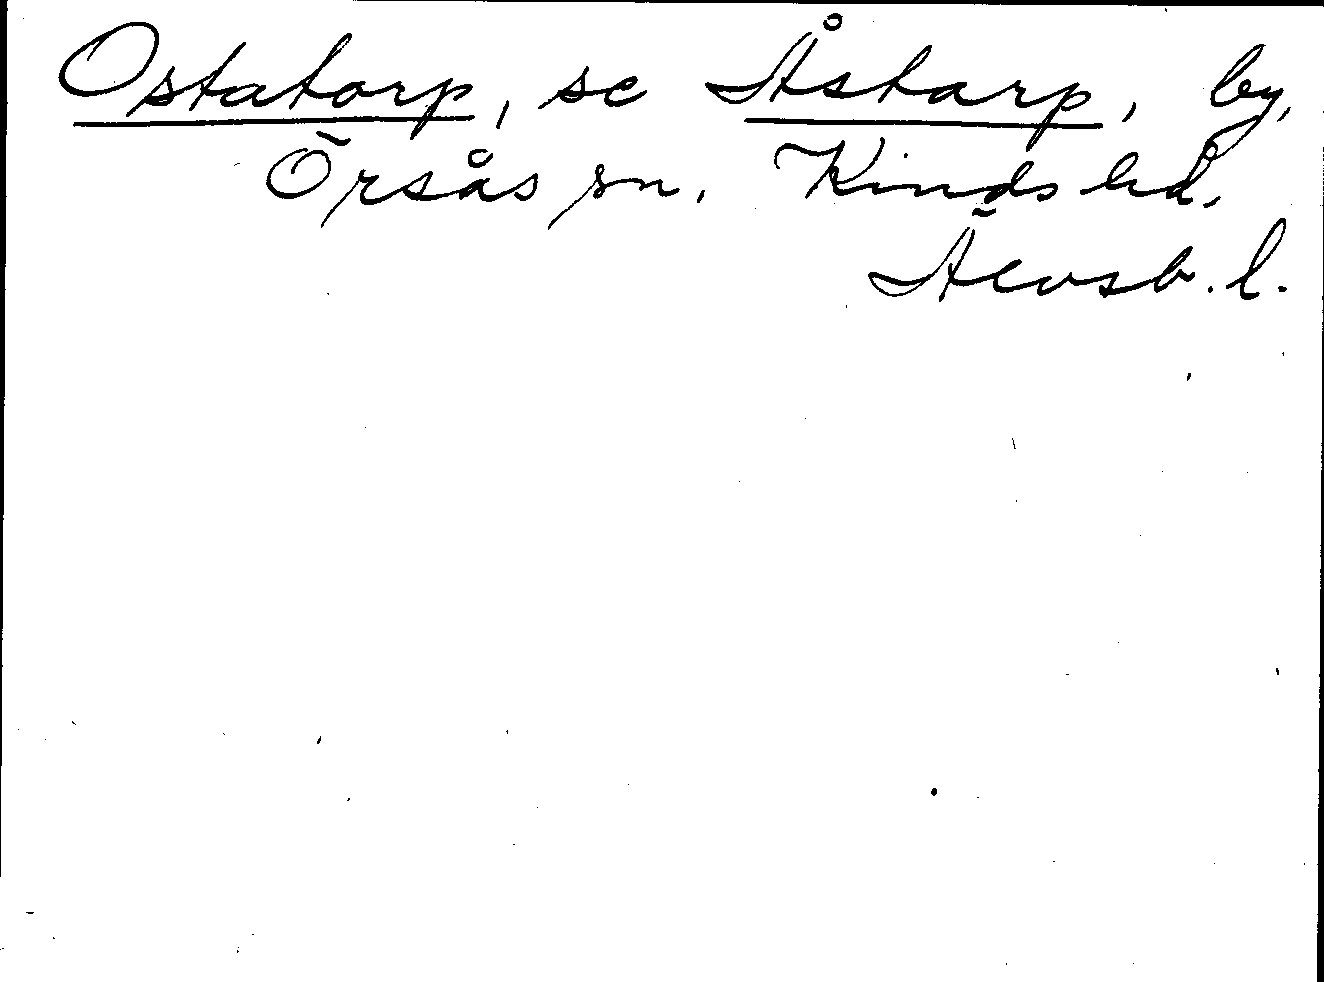 Ostatorp, se Åstarp, by,
Örsås sn. Kinds hd.
Älvsb. l.